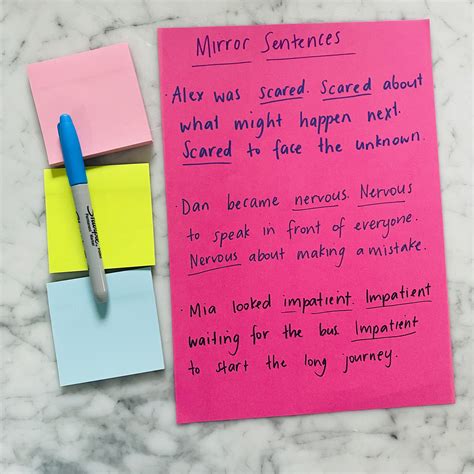 Mirror Sentences
· Alex was scared. Scared about
what might happen next.
Scared to face the unknown.
· Dan became nervous. Nervous
to speak in front of everyone.
Nervous about making a mistake.
· Mia looked impatient. Impatient
waiting for the bus. Impatient
to start the long journey.
Sharpie